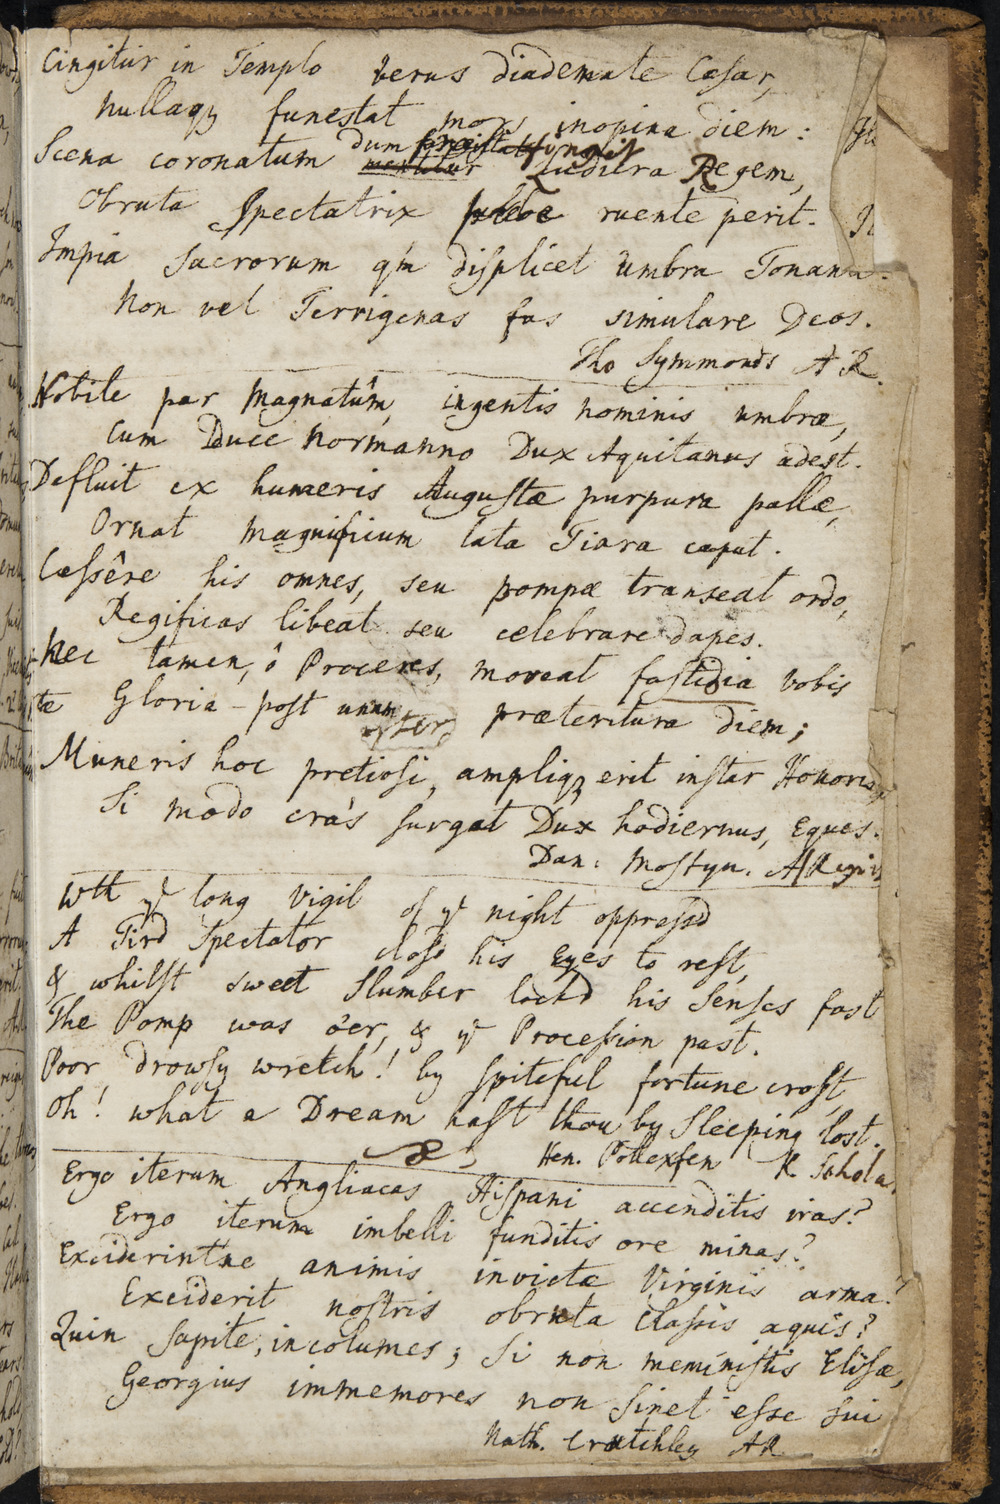 Cingitur in Templo verus diademate Cæsar,
Nullaqꝫ funestat mors inopina diem:
Scena coronatum dum fingit Ludicra Regem,
Obruta Spectatrix plebe ruente perit.
Impia Sacrorum qm displicet Umbra Tonanti.
Non vel Terrigenas fas simulare Deos.
Tho Symmonds A R.
Nobile par Magnatûm, ingentis nominis umbræ,
Cum Duce Normanno Dux Aquitanus adest.
Defluit ex humeris Augustæ purpura pallæ,
Ornat magnificum lata Tiara caput.
Cessêre his omnes, seu pompæ transeat ordo,
Regificas libeat seu celebrare dapes.
Nec tamen, ô Proceres, moveat fastidia vobis
Gloria - post unam præteritura diem;
Muneris hoc pretiosi, ampliqꝫ erit instar Honoris
Si modo cràs surgat Dux hodiernus, Eques.
Dan: Mostyn. A Regis
Wth yͤ long vigil of yͤ night oppressd
A Tird Spectator closd his Eyes to rest,
& whilst sweet Slumber lockd his Senses fast
The Pomp was o'er, & yͤ Procession past.
Poor drowsy wretch! by spiteful fortune crost,
Oh! what a Dream hast thou by Sleeping lost.
Hen. Pollexfen K Schola
Ergo iterum Angliacas Hispani accenditis iras?
Ergo iterum imbelli funditis ore minas?
Exciderintne animis invictæ Virginis arma?
Exciderit nostris obruta Classis aquis?
Quin sapite, incolumes; Si non meministis Elisæ,
Georgius immemores non sinet esse sui
Nath. Crutchley AR